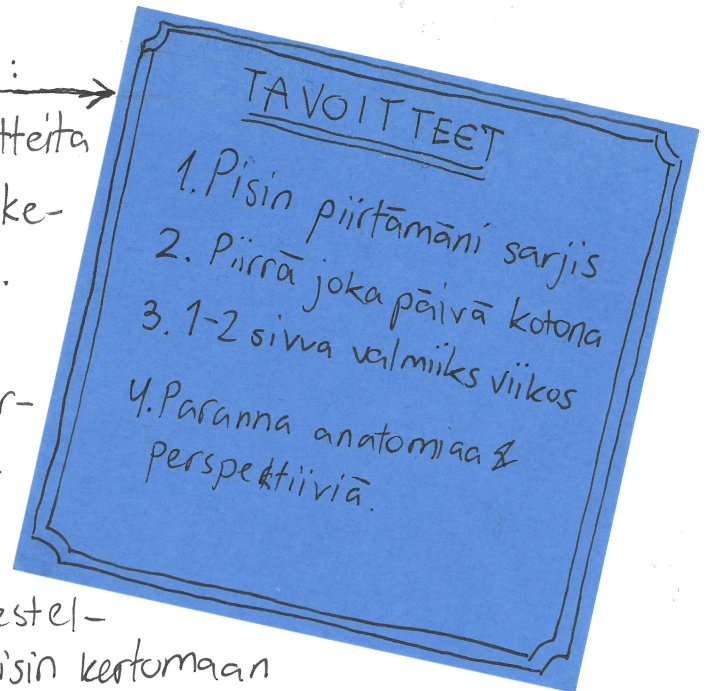 :
tteita
ke-
.
r-
.
estel-
isin kertomaan
TAVOITTEET
1. Pisin piirtämäni sarjis
2. Piirrä joka päivä kotona
3. 1-2 sivua valmiiks viikos
4. Paranna anatomiaa &
perspektiiviä.